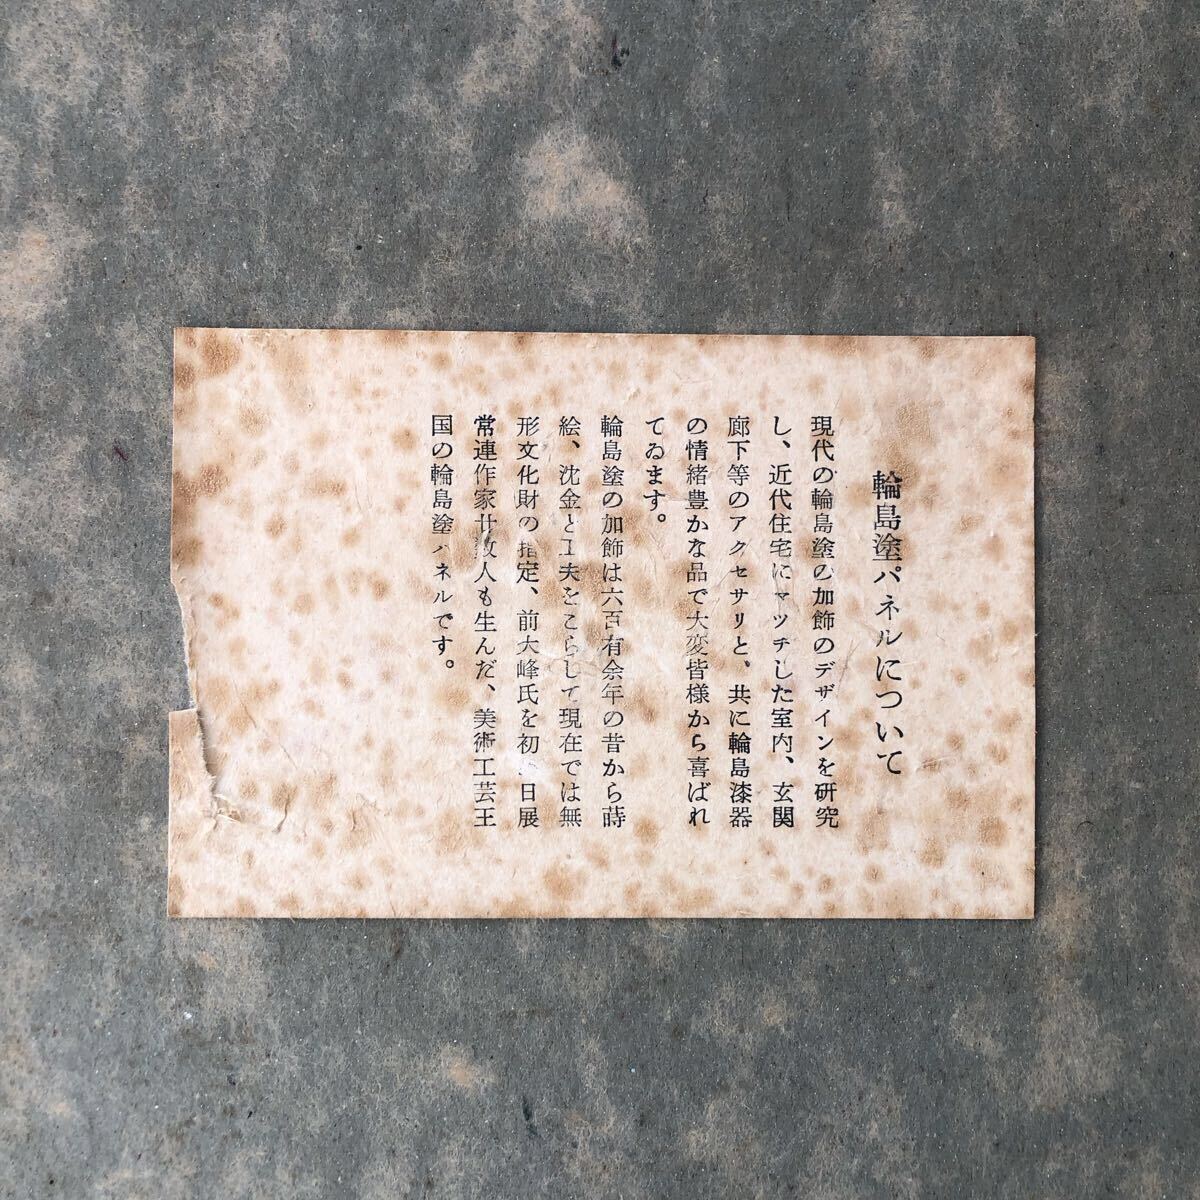 輪島塗パネルについて
現代の輪島塗の加飾のデザインを研究
し、近代住宅にマッチした室内、玄関
廊下等のアクセサリと、共に輪島漆器
の情緒豊かな品で大変皆様から喜ばれ
てゐます。
輪島塗の加飾は六百有余年の昔から蒔
絵、沈金と工夫をこらして現在では無
形文化財の指定、前大峰氏を初め日展
常連作家廿数人も生んだ、美術工芸王
国の輪島塗パネルです。